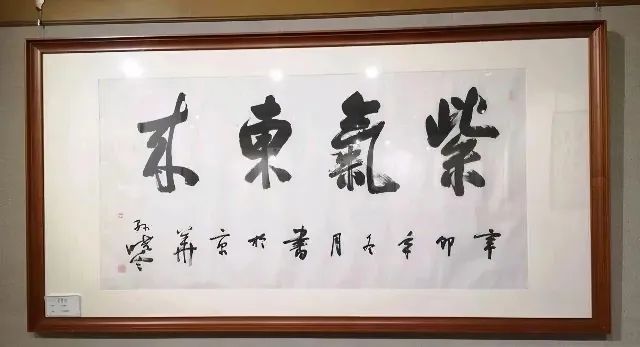 紫氣東来
辛卯年冬月書於京華
孙晓云